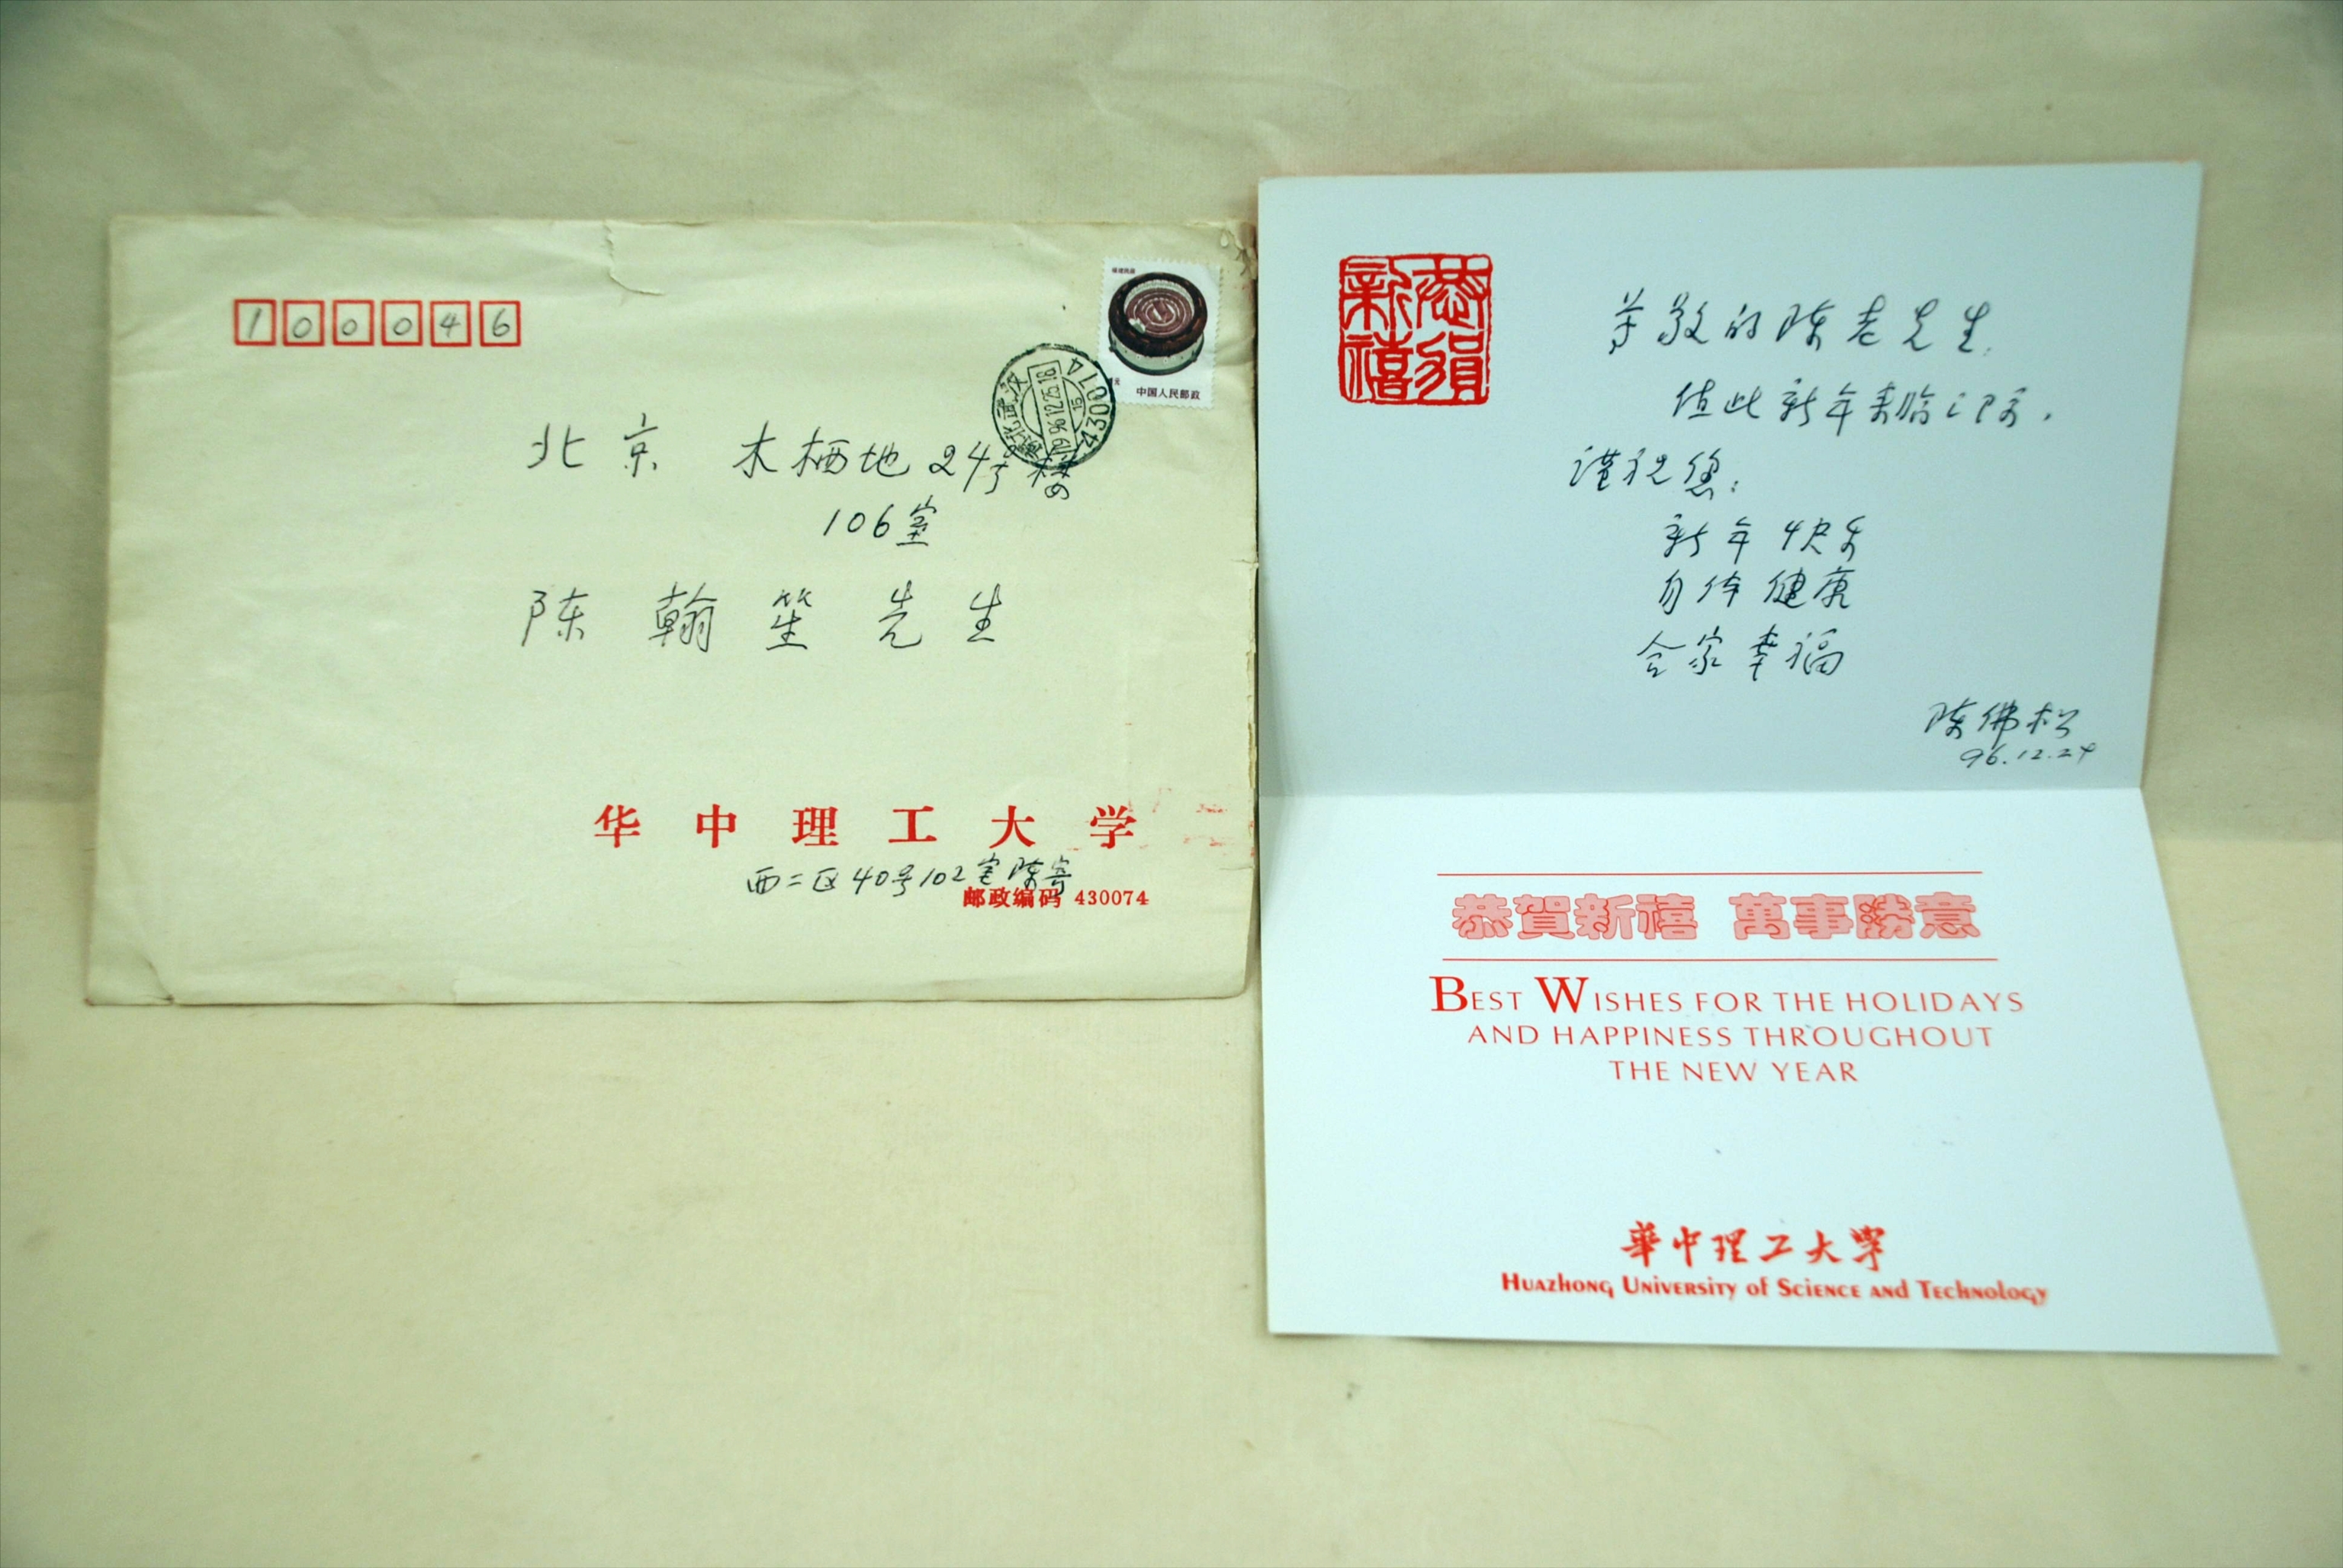 100046
福建民居
1元
中国人民邮政
湖北武汉
1996.12.25.18
15
430074
北京 木栖地24号楼
106室
陈翰笙先生
华中理工大学
西二区40号102室陈寄
邮政编码 430074
恭贺新禧
尊敬的陈老先生:
值此新年来临之际,
谨祝您:
新年快乐
身体健康
合家幸福
陈佛松
96.12.24
恭賀新禧 萬事勝意
BEST WISHES FOR THE HOLIDAYS
AND HAPPINESS THROUGHOUT
THE NEW YEAR
華中理工大學
HUAZHONG UNIVERSITY OF SCIENCE AND TECHNOLOGY